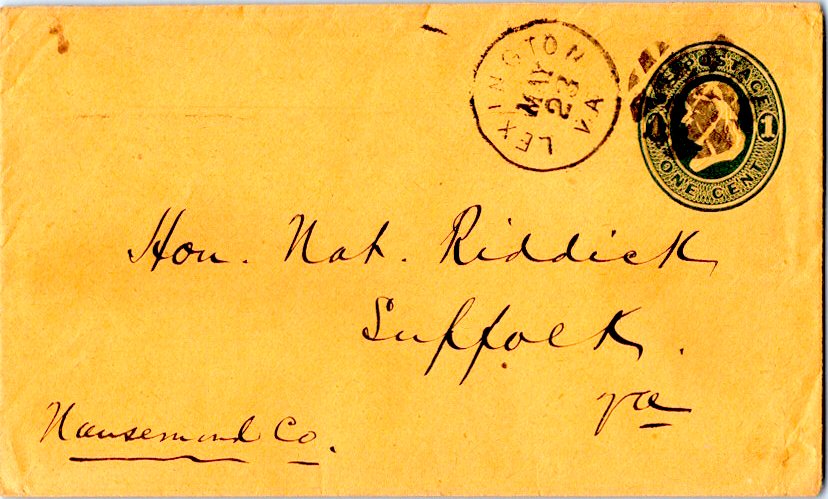 LEXINGTON VA
MAY
23
POSTAGE
1
ONE CENT
Hon. Nat. Riddick
Suffolk.
Va
Nansemond Co.